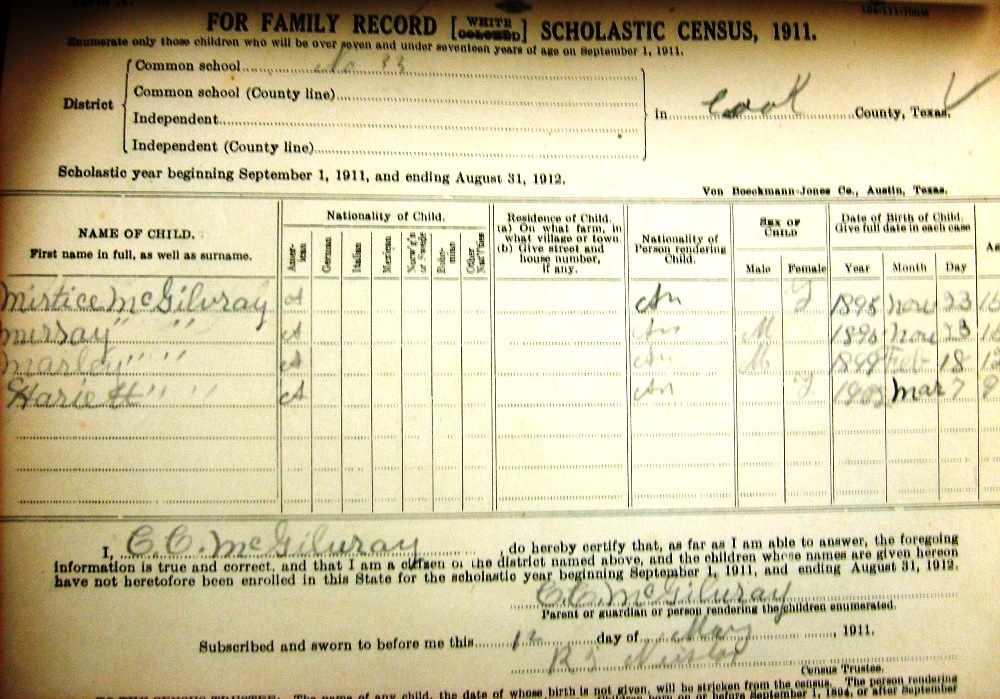 FOR FAMILY RECORD [WHITE COLORED] SCHOLASTIC CENSUS, 1911.
Enumerate only those children who will be over seven and under seventeen years of age on September 1, 1911.
District
Common school No 83
Common school (County line)
Independent
Independent (County line)
in Cook County, Texas.
Scholastic year beginning September 1, 1911, and ending August 31, 1912.
Von Boeckmann-Jones Co., Austin, Texas.
NAME OF CHILD.
First name in full, as well as surname.
Nationality of Child.
American
German
Italian
Mexican
Norw'g'n or Swede
Bohemian
Other Nat'lties
Residence of Child.
(a) On what farm, in what village or town.
(b) Give street and house number, if any.
Nationality of Person rendering Child.
SEX OF CHILD
Male Female
Date of Birth of Child.
Give full date in each case
Year Month Day
Mirtice McGilvray A An F 1895 Nov 23
Murray " " A An M 1896 Nov 23
Marley " " A An M 1899 Feb 18
Hariett " " A An F Mar 7 9
I, C.C. McGilvray, do hereby certify that, as far as I am able to answer, the foregoing
information is true and correct, and that I am a citizen of the district named above, and the children whose names are given hereon
have not heretofore been enrolled in this State for the scholastic year beginning September 1, 1911, and ending August 31, 1912.
C.C. McGilvray
Parent or guardian or person rendering the children enumerated.
Subscribed and sworn to before me this 12 day of May, 1911.
Census Trustee.